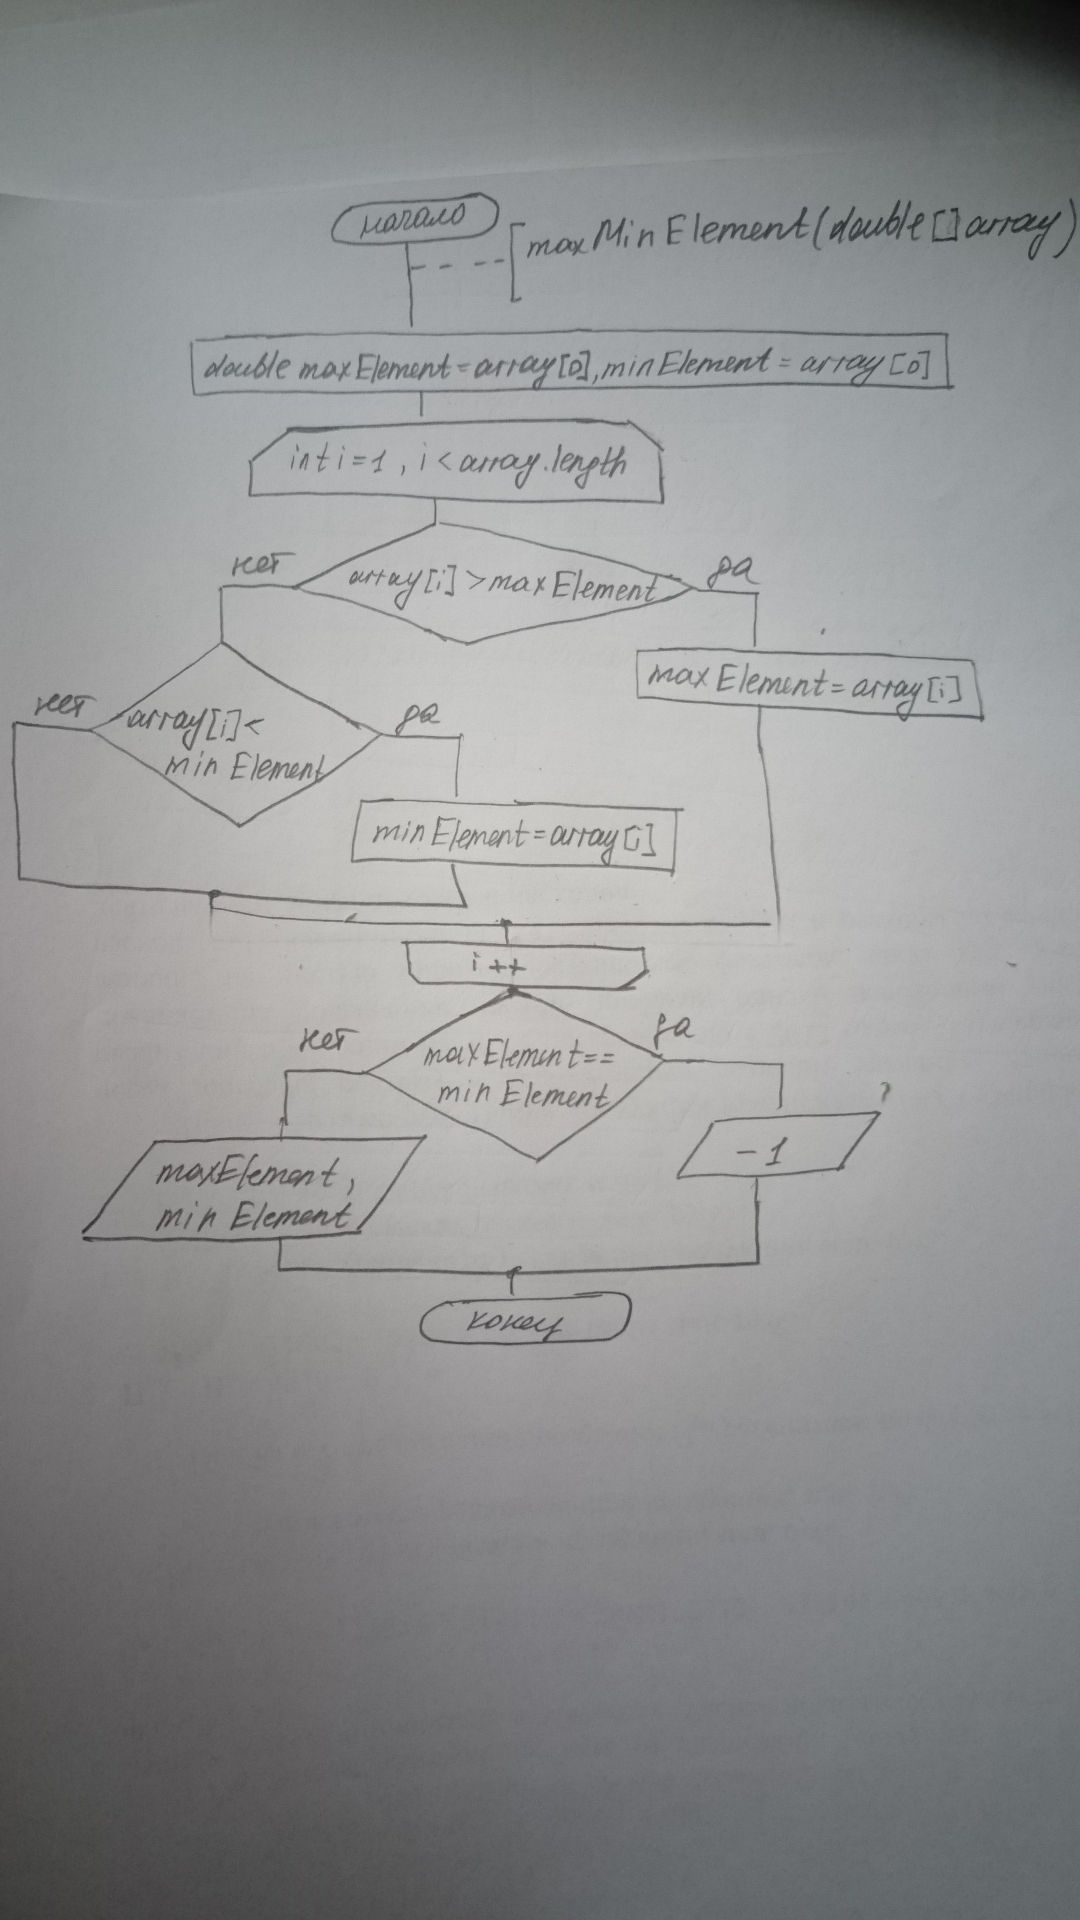 начало
maxMinElement(double[]array)
double maxElement=array[0], minElement = array[0]
int i=1, i<array.length
нет
array[i]>maxElement
да
maxElement=array[i]
нет
array[i]<
minElement
да
minElement=array[i]
i++
нет
maxElement==
minElement
да
?
maxElement,
minElement
-1
конец